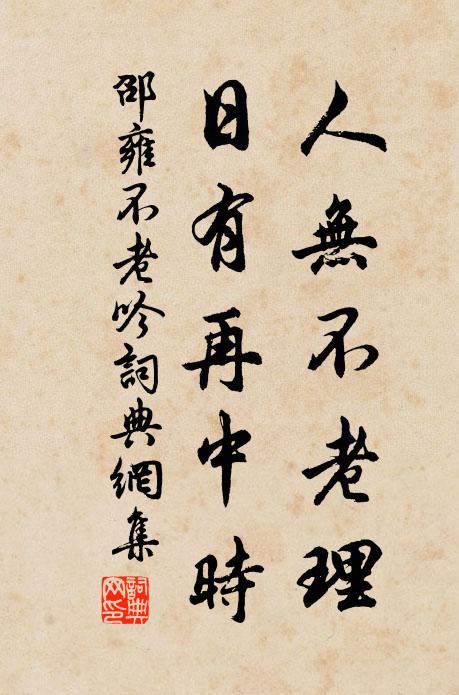 人無不老理
日有再中時
邵雍不老吟詞典網集
詞典
网印